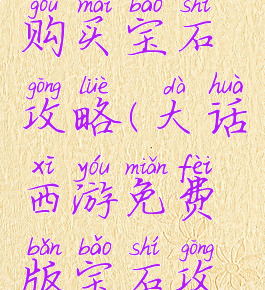 gòu mǎi bǎo shí
购买宝石
gōng lüè dà huà
攻略(大话
xī yóu miǎn fèi
西游免费
bǎn bǎo shí gōng
版宝石攻